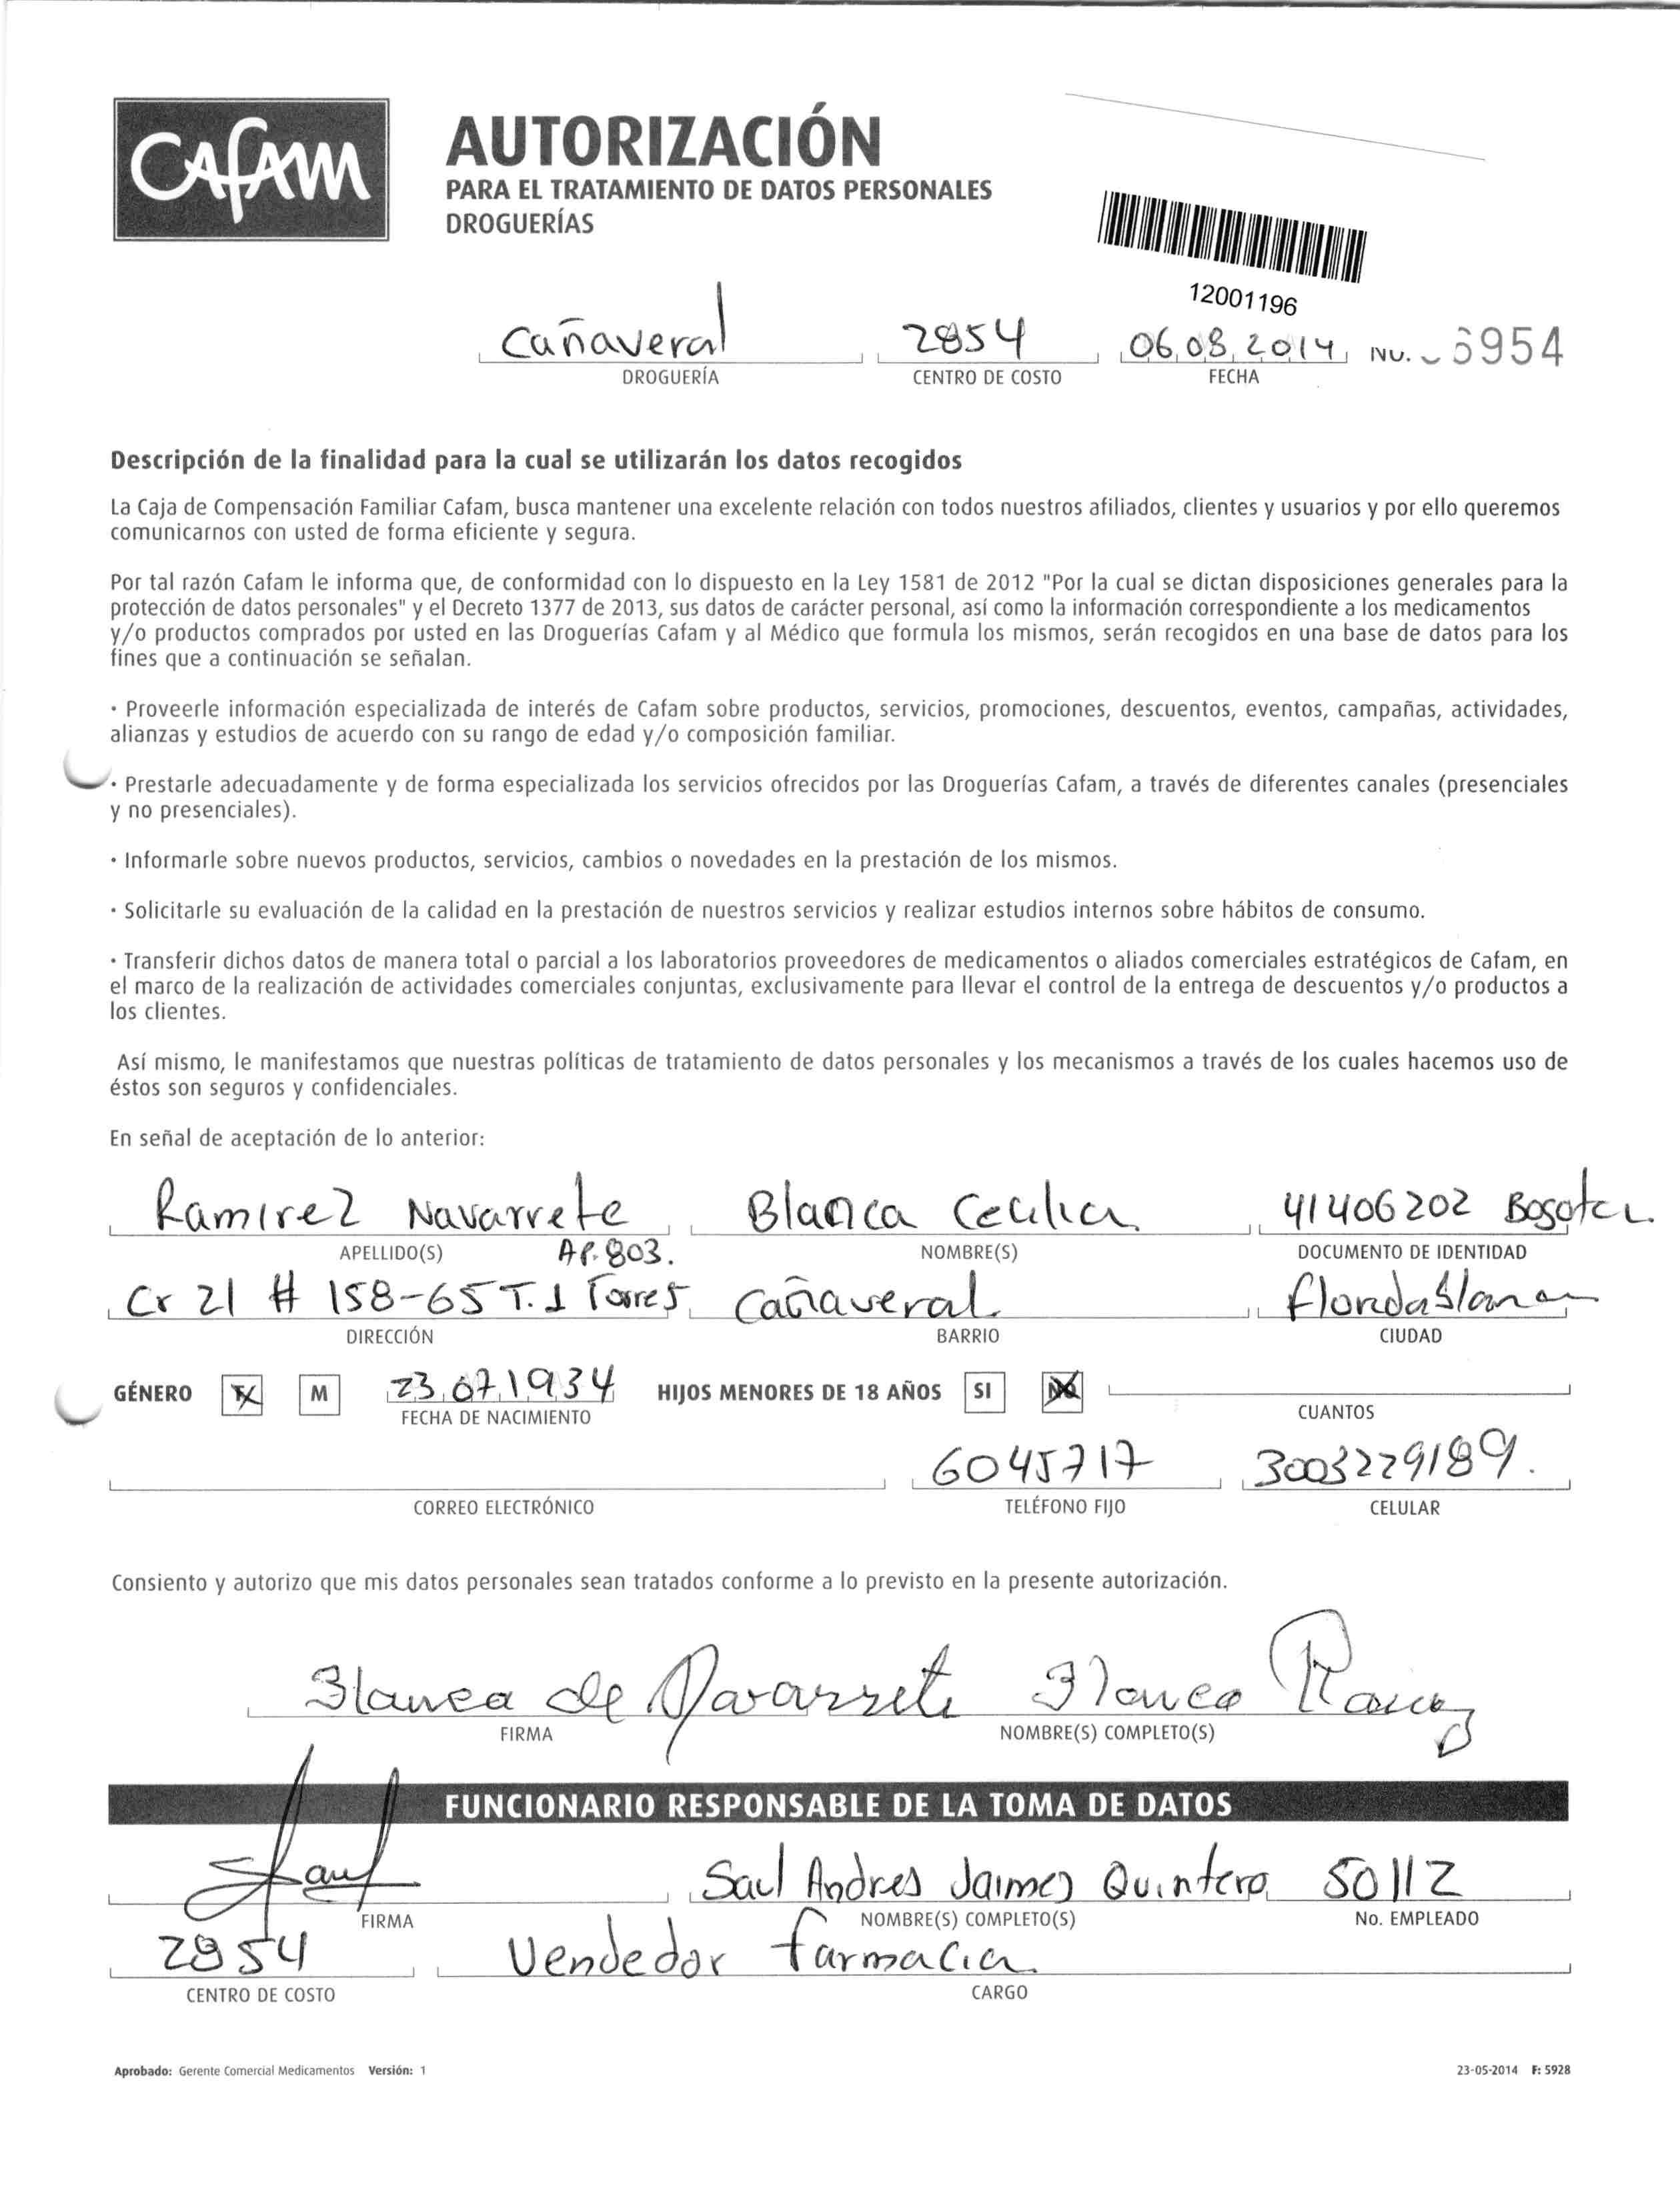 Cafam
AUTORIZACIÓN
PARA EL TRATAMIENTO DE DATOS PERSONALES
DROGUERÍAS
12001196
Cañaveral 2854 06.08.2014 No. 6954
DROGUERÍA CENTRO DE COSTO FECHA
Descripción de la finalidad para la cual se utilizarán los datos recogidos
La Caja de Compensación Familiar Cafam, busca mantener una excelente relación con todos nuestros afiliados, clientes y usuarios y por ello queremos
comunicarnos con usted de forma eficiente y segura.
Por tal razón Cafam le informa que, de conformidad con lo dispuesto en la Ley 1581 de 2012 "Por la cual se dictan disposiciones generales para la
protección de datos personales" y el Decreto 1377 de 2013, sus datos de carácter personal, así como la información correspondiente a los medicamentos
y/o productos comprados por usted en las Droguerías Cafam y al Médico que formula los mismos, serán recogidos en una base de datos para los
fines que a continuación se señalan.
· Proveerle información especializada de interés de Cafam sobre productos, servicios, promociones, descuentos, eventos, campañas, actividades,
alianzas y estudios de acuerdo con su rango de edad y/o composición familiar.
· Prestarle adecuadamente y de forma especializada los servicios ofrecidos por las Droguerías Cafam, a través de diferentes canales (presenciales
y no presenciales).
· Informarle sobre nuevos productos, servicios, cambios o novedades en la prestación de los mismos.
· Solicitarle su evaluación de la calidad en la prestación de nuestros servicios y realizar estudios internos sobre hábitos de consumo.
· Transferir dichos datos de manera total o parcial a los laboratorios proveedores de medicamentos o aliados comerciales estratégicos de Cafam, en
el marco de la realización de actividades comerciales conjuntas, exclusivamente para llevar el control de la entrega de descuentos y/o productos a
los clientes.
Así mismo, le manifestamos que nuestras políticas de tratamiento de datos personales y los mecanismos a través de los cuales hacemos uso de
éstos son seguros y confidenciales.
En señal de aceptación de lo anterior:
Ramirez Navarrete Blanca Cecilia 41406202 Bogota
APELLIDO(S) AP. 803. NOMBRE(S) DOCUMENTO DE IDENTIDAD
Cr 21 # 158-65 T.1 Torres Cañaveral Floridablanca
DIRECCIÓN BARRIO CIUDAD
GÉNERO F M 23.07.1934 HIJOS MENORES DE 18 AÑOS SI NO
FECHA DE NACIMIENTO CUANTOS
6045717 3003229189.
CORREO ELECTRÓNICO TELÉFONO FIJO CELULAR
Consiento y autorizo que mis datos personales sean tratados conforme a lo previsto en la presente autorización.
Blanca de Navarrete Blanca
FIRMA NOMBRE(S) COMPLETO(S)
FUNCIONARIO RESPONSABLE DE LA TOMA DE DATOS
Saul Andres Jaimes Quintero 50112
FIRMA NOMBRE(S) COMPLETO(S) No. EMPLEADO
2854 Vendedor farmacia
CENTRO DE COSTO CARGO
Aprobado: Gerente Comercial Medicamentos Versión: 1 23-05-2014 F: 5928